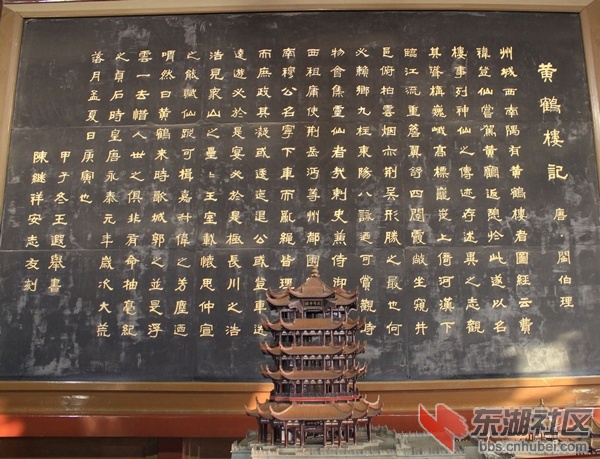 黃鶴樓記 唐·閻伯理
州城西南隅有黃鶴樓者圖經云費
禕登仙嘗駕黃鶴返憩於此遂以名
樓事列神仙之傳迹存述異之志觀
其聳構巍峨高標巃嵸上倚河漢下
臨江流重簷翼舒四闥霞敞坐窺井
邑俯拍雲烟亦荊吳形勝之最也何
必賴鄉九柱東陽八詠迺可賞觀時
物會集靈仙者哉刺史兼侍御
西租庸使荊岳沔等州都團
南穆公名寧下車而亂繩皆理
而庶政其凝或逶迤退公或登車送
遠遊必於是宴必於是極長川之浩
浩見眾山之壘壘王室載懷思仲宣
之能賦仙蹤可揖嘉叔偉之芳塵迺
喟然曰黃鶴來時歌城郭之並是浮
雲一去惜人世之俱非有命抽毫紀
之貞石時皇唐永泰元年歲次大荒
落月孟夏日庚寅也
甲子冬王遐舉書
陳継祥安志友刻
东湖社区
bbs.cnhubei.com